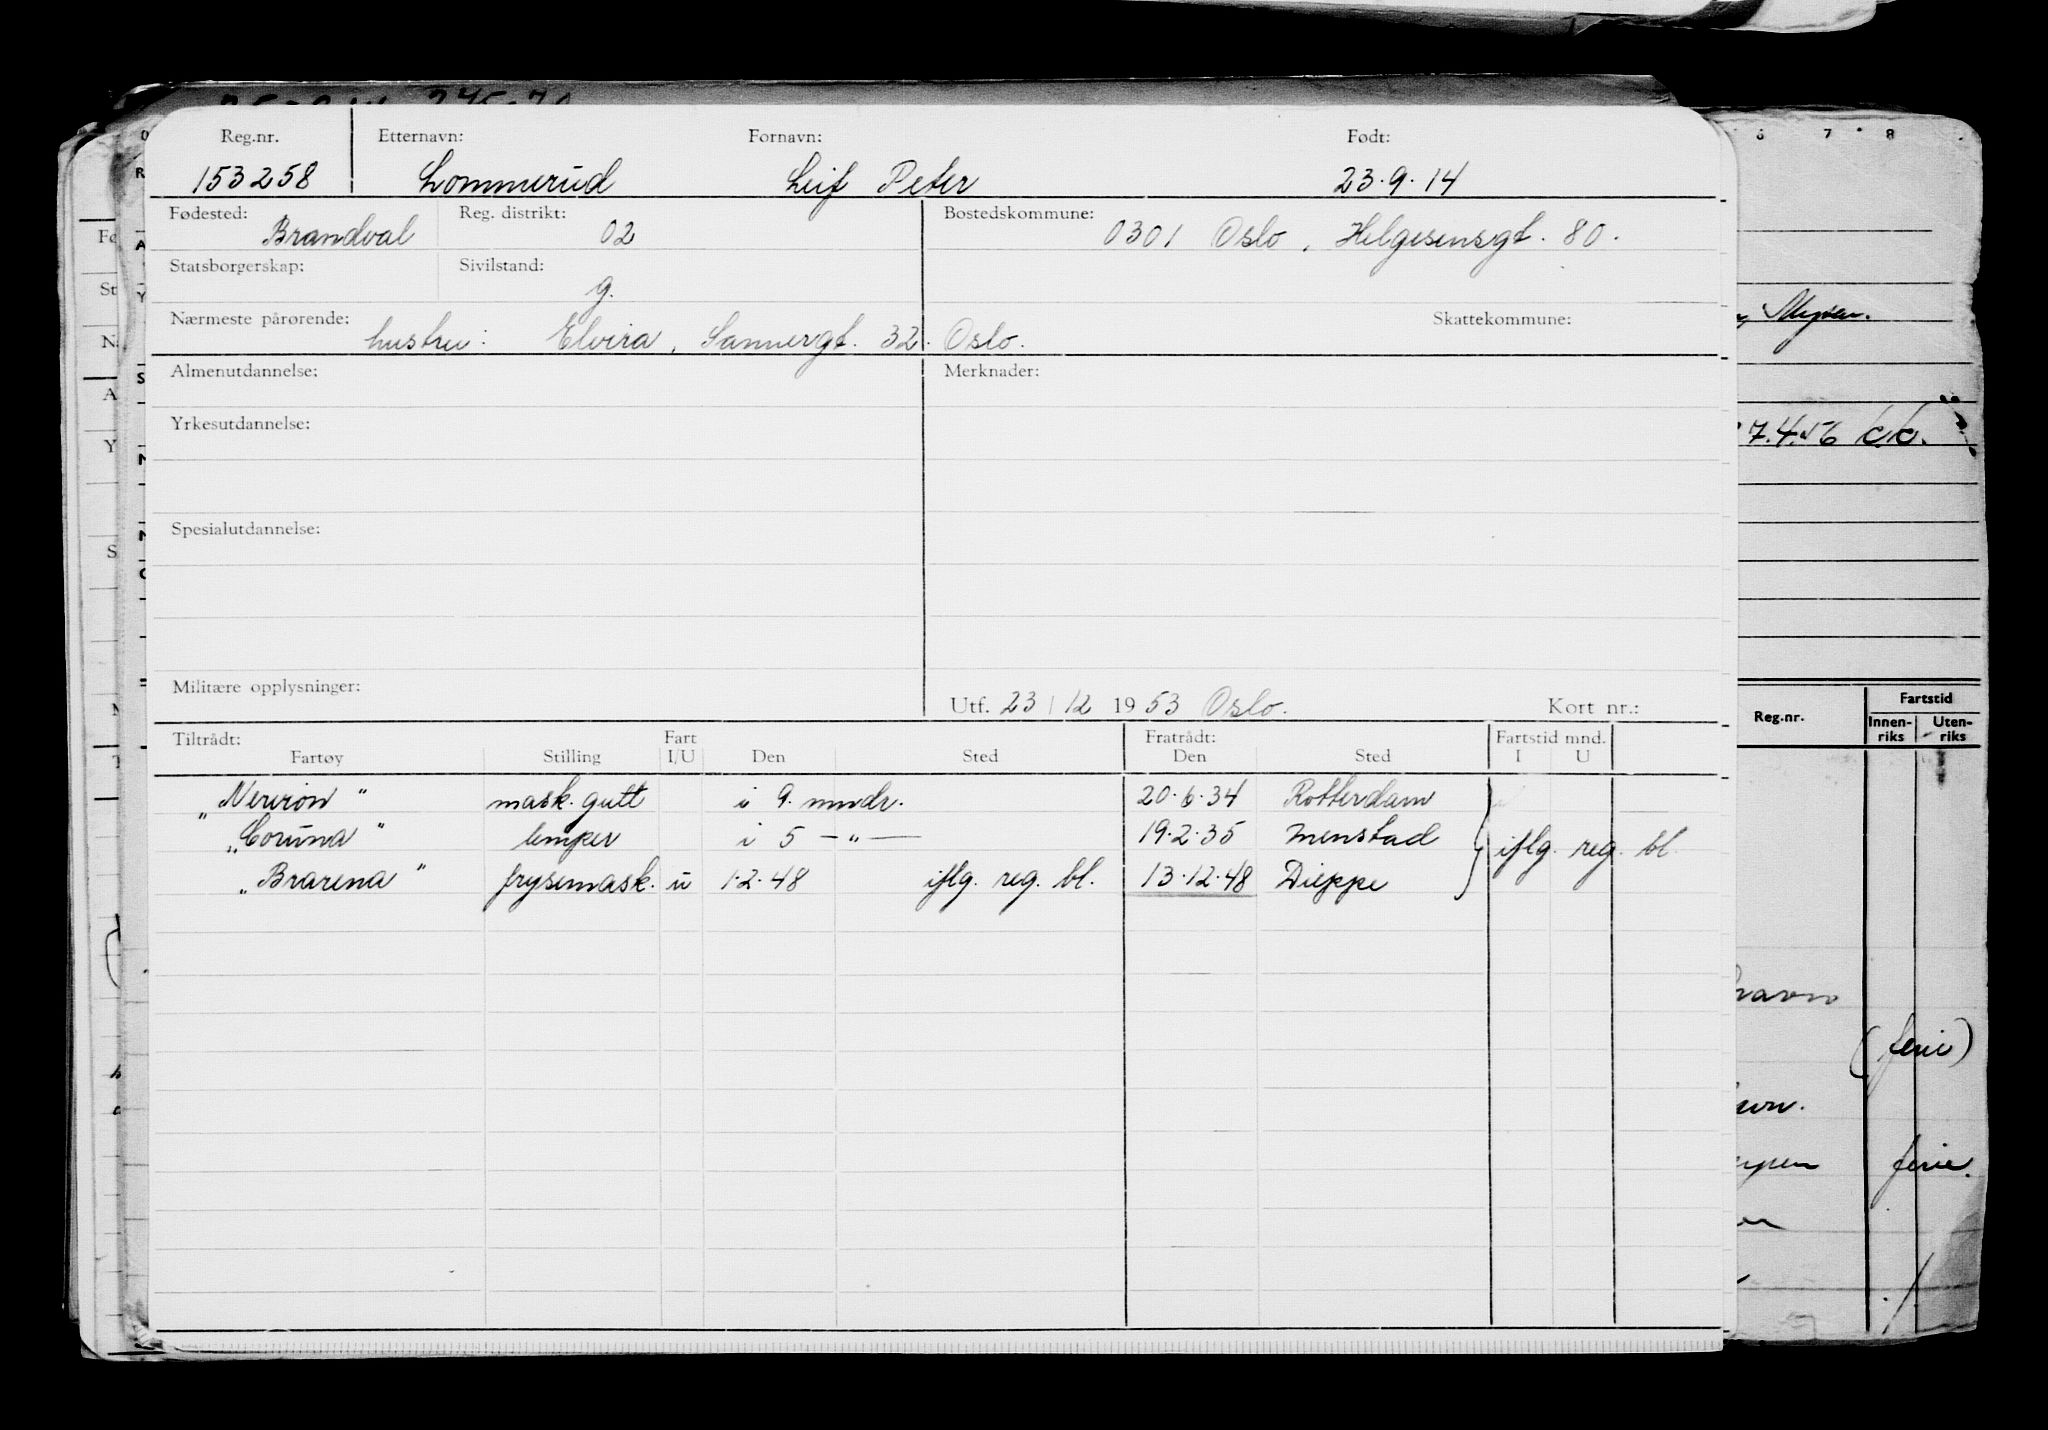 Reg.nr. Etternavn: Fornavn: Født:
153258 Lommerud Leif Peter 23.9.14
Fødested: Brandval Reg. distrikt: 02 Bostedskommune: 0301 Oslo, Helgesensgt. 80.
Statsborgerskap: Sivilstand: g.
Nærmeste pårørende: hustru: Elvira, Sannergt. 32. Oslo. Skattekommune:
Almenutdannelse: Merknader:
Yrkesutdannelse:
Spesialutdannelse:
Militære opplysninger: Utf. 23/12 1953 Oslo. Kort nr.:
Tiltrådt: Fart Fratrådt: Fartstid mnd.
Fartøy Stilling I/U Den Sted Den Sted I U
mask. gutt i 9 mndr. 20.6.34 Rotterdam
"Coruna" lemper i 5 —"— 19.2.35 Menstad } iflg. reg. bl.
"Brarena" frysemask. u 1.2.48 iflg. reg. bl. 13.12.48 Dieppe
6 7 8
Mysen.
7.4.56
Reg.nr. Fartstid
Innen-riks Uten-riks
havn
(ferie)
ferie.